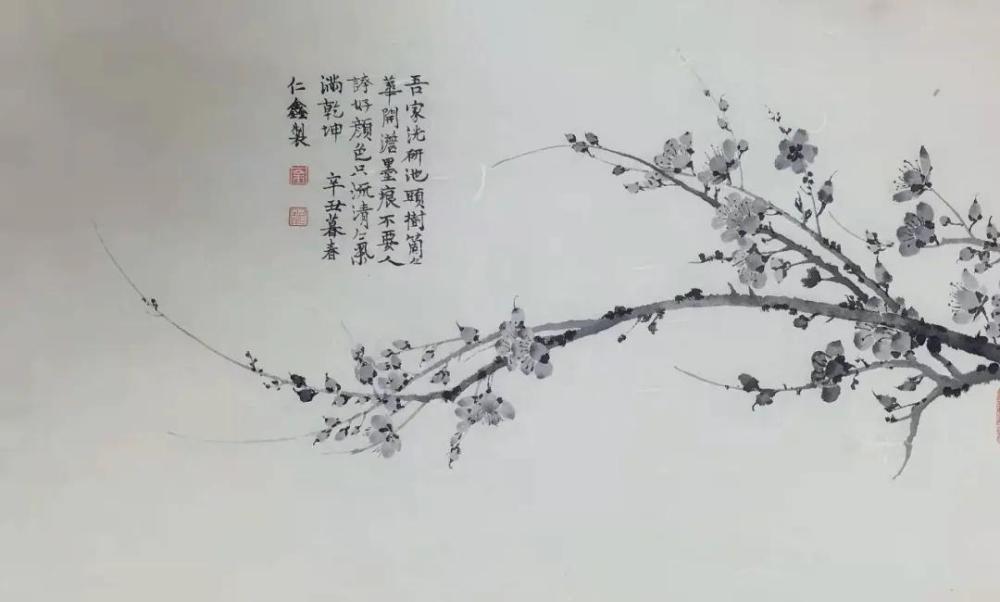 吾家洗研池頭樹箇々
華開澹墨痕不要人
誇好顔色只流清氣
滿乾坤 辛丑暮春
仁鑫製